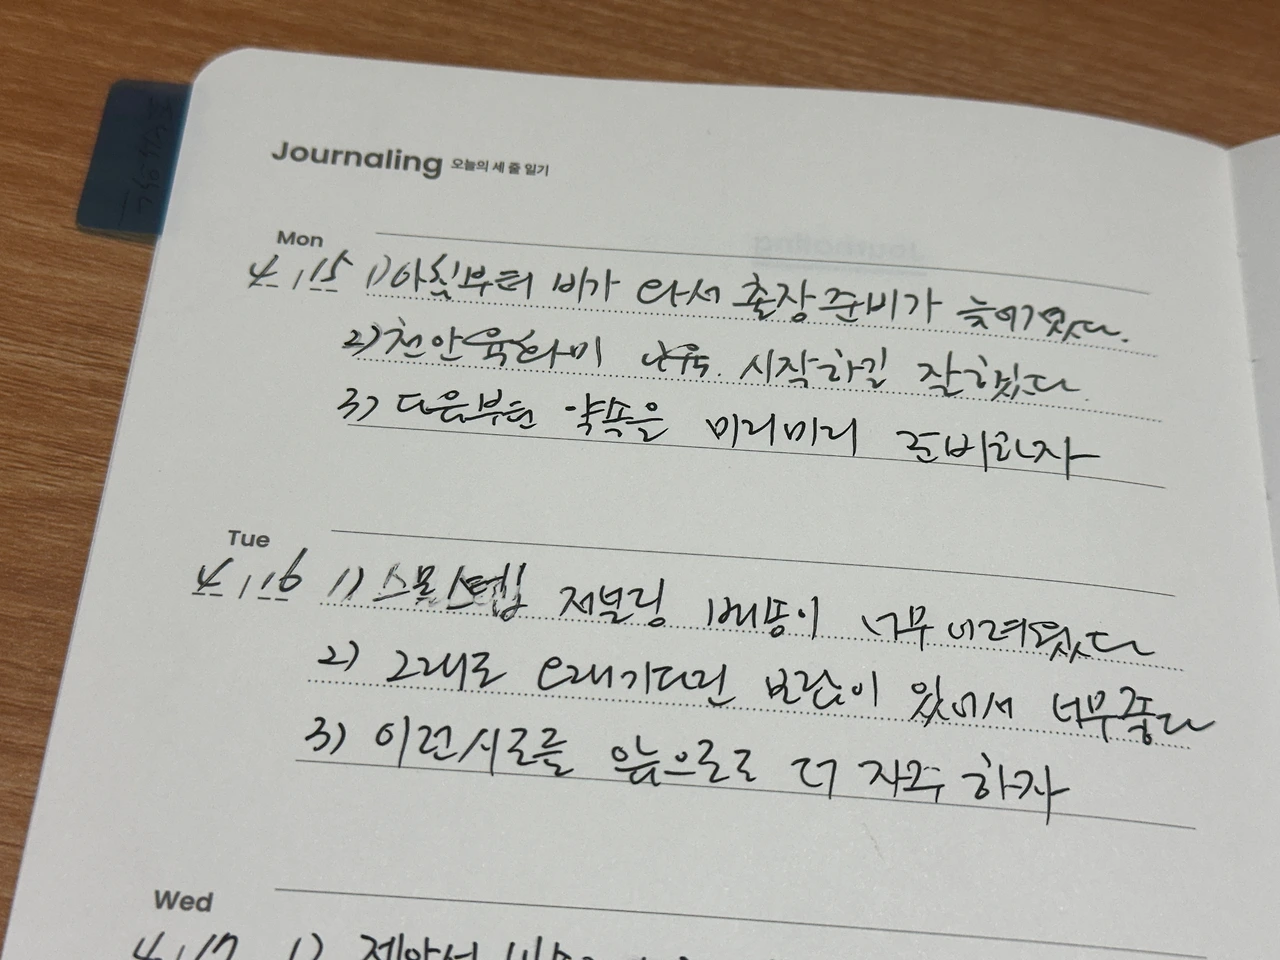 Journaling 오늘의 세 줄 일기
Mon
4.15 1) 아침부터 비가 와서 출장준비가 늦어졌다.
2) 천안 시작하길 잘했다.
3) 다음부턴 약속을 미리미리 준비하자
Tue
4.16 1) 스몰스텝 저널링 1배뚱이 너무 어려웠다
2) 그래도 오래기다린 보람이 있어서 너무좋다
3) 이런시도를 앞으로도 더 자주 하자
Wed
4.17 1) 제안서